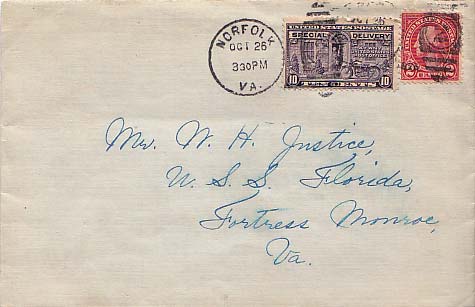 NORFOLK
OCT 26
330PM
VA.
UNITED STATES POSTAGE
SPECIAL DELIVERY
10 TEN CENTS 10
2 2
Mr. W. H. Justice,
U. S. S. Florida,
Fortress Monroe,
Va.